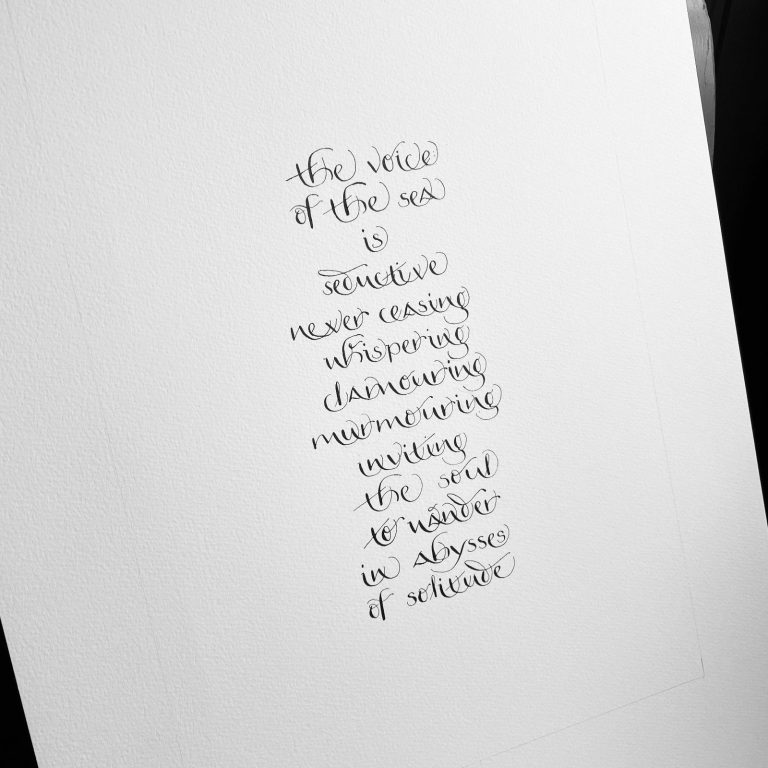 the voice
of the sea
is
seductive
never ceasing
whispering
clamouring
murmouring
inviting
the soul
to wander
in abysses
of solitude